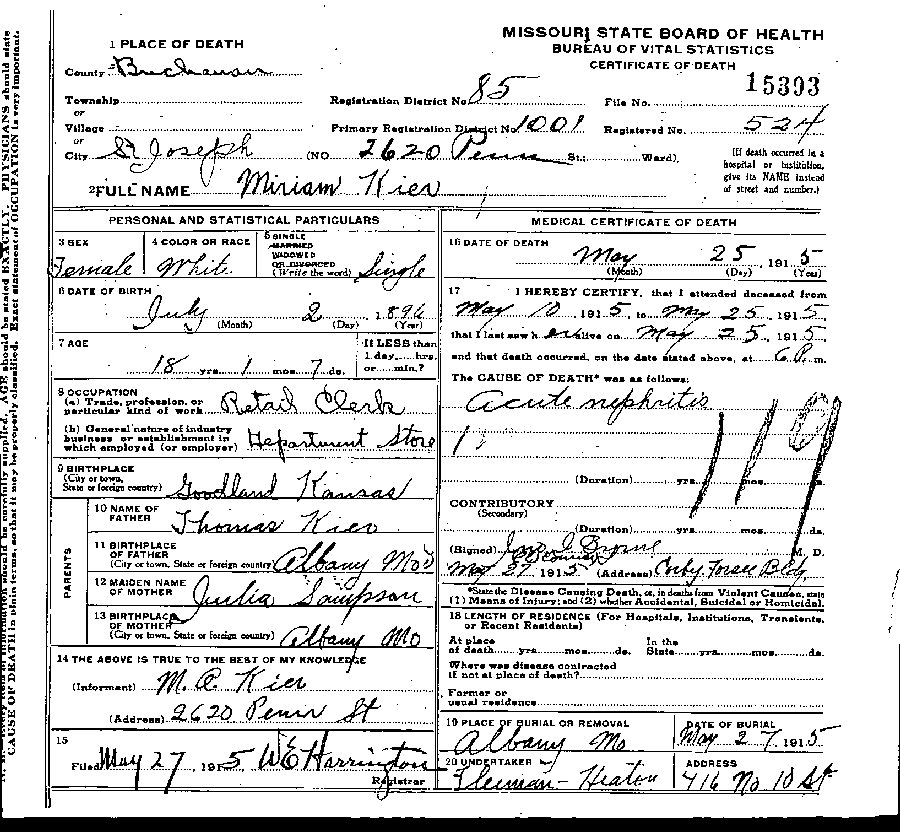 MISSOURI STATE BOARD OF HEALTH
BUREAU OF VITAL STATISTICS
CERTIFICATE OF DEATH
15393
1 PLACE OF DEATH
County Buchanan
Township
or
Village
or
City St Joseph (NO 2620 Penn St.; Ward)
Registration District No 85 File No.
Primary Registration District No 1001 Registered No. 524
(If death occurred in a
hospital or institution,
give its NAME instead
of street and number.)
2 FULL NAME Miriam Kier
PERSONAL AND STATISTICAL PARTICULARS
3 SEX Female
4 COLOR OR RACE White
5 SINGLE
MARRIED
WIDOWED
OR DIVORCED
(Write the word) Single
6 DATE OF BIRTH
July 2 1896
(Month) (Day) (Year)
7 AGE
18 yrs. 1 mos. 7 ds.
If LESS than
1 day....hrs.
or....min.?
8 OCCUPATION
(a) Trade, profession, or
particular kind of work Retail Clerk
(b) General nature of industry
business or establishment in
which employed (or employer) Department Store
9 BIRTHPLACE
(City or town,
State or foreign country) Goodland Kansas
PARENTS
10 NAME OF
FATHER Thomas Kier
11 BIRTHPLACE
OF FATHER
(City or town, State or foreign country) Albany Mo
12 MAIDEN NAME
OF MOTHER Julia Sampson
13 BIRTHPLACE
OF MOTHER
(City or town, State or foreign country) Albany Mo
14 THE ABOVE IS TRUE TO THE BEST OF MY KNOWLEDGE
(Informant) M. C. Kier
(Address) 2620 Penn St
15
Filed May 27 1915 W E Harrington
Registrar
MEDICAL CERTIFICATE OF DEATH
16 DATE OF DEATH
May 25, 1915
(Month) (Day) (Year)
17 I HEREBY CERTIFY, that I attended deceased from
May 10 1915, to May 25, 1915
that I last saw her alive on May 25, 1915
and that death occurred, on the date stated above, at 6 P. m.
The CAUSE OF DEATH* was as follows:
Acute nephritis
119
(Duration) yrs. mos. ds.
CONTRIBUTORY
(Secondary)
(Duration) yrs. mos. ds.
(Signed) Byrne M. D.
May 27 1915 (Address) Corby Forsee Bldg
*State the Disease Causing Death, or, in deaths from Violent Causes, state
(1) Means of Injury; and (2) whether Accidental, Suicidal or Homicidal.
18 LENGTH OF RESIDENCE (For Hospitals, Institutions, Transients,
or Recent Residents)
At place In the
of death....yrs....mos....ds. State....yrs....mos....ds.
Where was disease contracted
if not at place of death?
Former or
usual residence
19 PLACE OF BURIAL OR REMOVAL
Albany Mo
DATE OF BURIAL
May 27 1915
20 UNDERTAKER
Heaton
ADDRESS
416 No 10 St
AGE should be stated EXACTLY. PHYSICIANS should state
CAUSE OF DEATH in plain terms, so that it may be properly classified. Exact statement of OCCUPATION is very important.